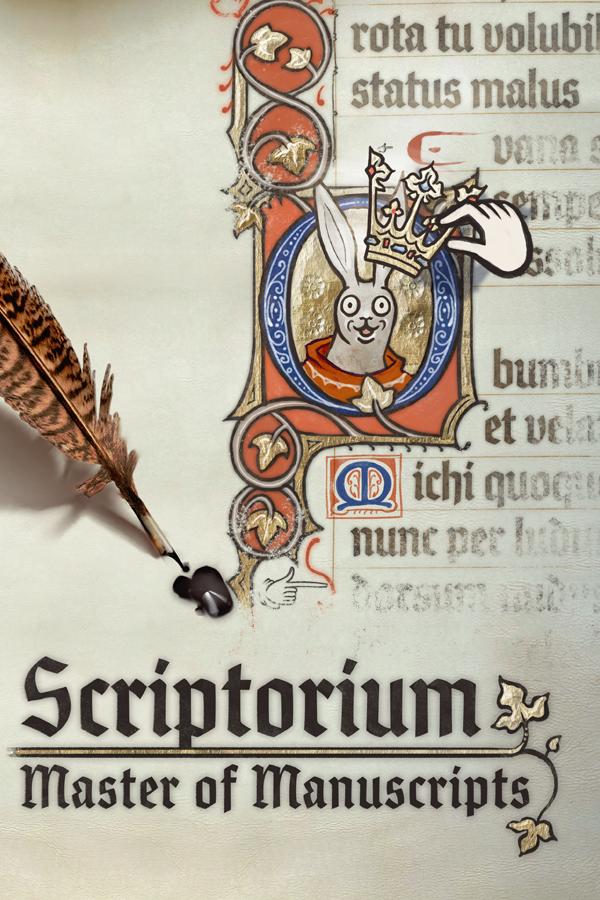 rota tu volubil
status malus
vana s
sempe
ssolu
bumbr
et vela
Michi quoque
nunc per ludu
dorsum nudu
Scriptorium
Master of Manuscripts